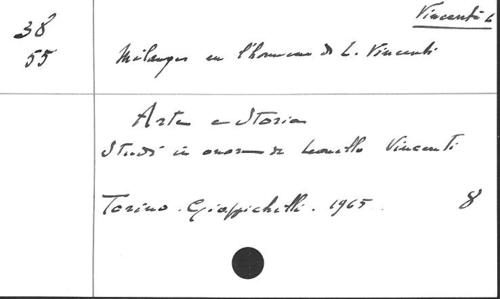 Vincenti L
38
55
Mélanges en l'honneur de L. Vincenti
Arte e Storia
Studi in onore di Leonello Vincenti
Torino. Giappichelli. 1965. 8